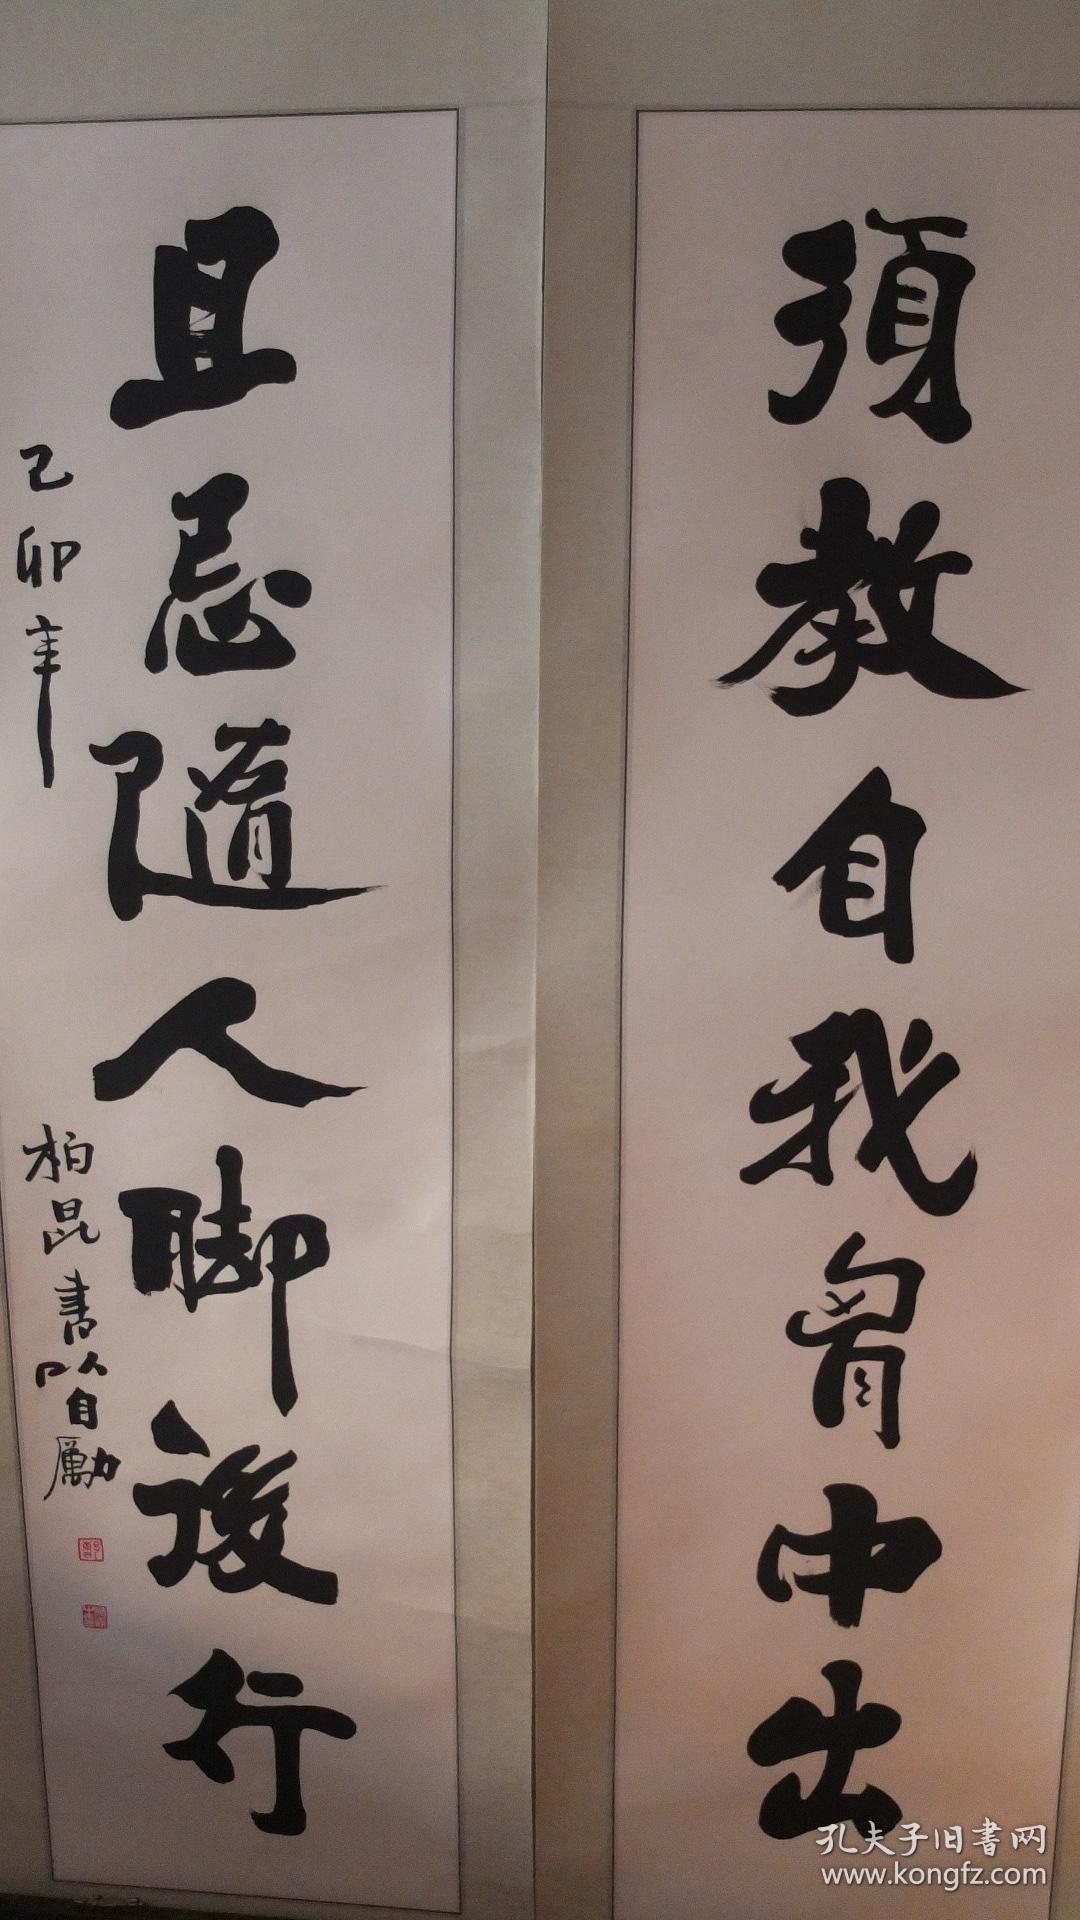 須教自我胷中出
且忌隨人脚後行
己卯年
柏昆書以自勵
孔夫子旧書网
www.kongfz.com